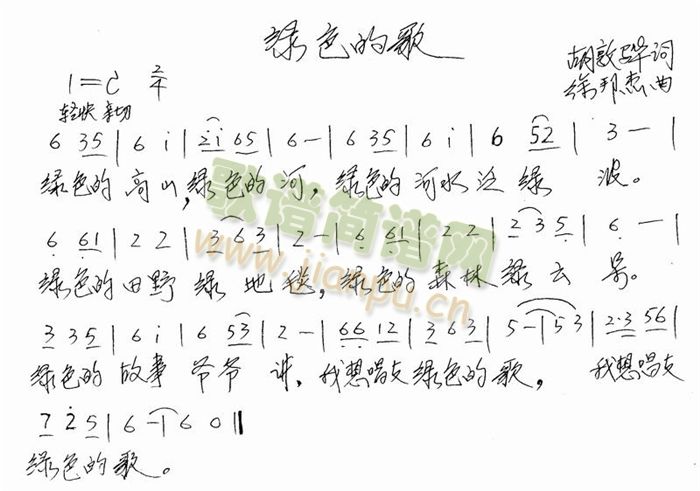 绿色的歌
1=C 2/4
胡敦骅词
徐邦杰曲
轻快 亲切
6 35 | 6 i | 2i 65 | 6 - | 6 35 | 6 i | 6 52 | 3 - |
绿色的高山,绿色的河,绿色的河水泛绿波。
6 61 | 2 2 | 3 6 3 | 2 - | 6 61 | 2 2 | 2 3 5 | 6 - |
绿色的田野绿地毯,绿色的森林绿云昂。
3 35 | 6 i | 6 53 | 2 - | 66 12 | 3 6 3 | 5 - | 5 3 | 2·3 56 |
绿色的故事爷爷讲,我想唱支绿色的歌,我想唱支
7 2 5 | 6 - | 6 0 ‖
绿色的歌。
歌谱简谱网
www.jianpu.cn